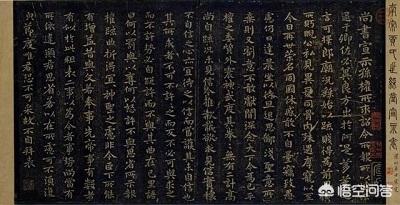 尚書宣示孫權所求詔令所報所以博示
逮于卿佐必冀良方出於阿是芻蕘之
言可擇郎廟況繇始以疏賤得為前
恩橫所盼睨公私見異愛同骨肉殊遇厚寵以至
今日再世榮名同國休慼敢不自量竊致愚
慮仍日達晨坐以待旦退思鄙淺聖意所
棄則又割意不敢獻聞深念天下今為已平
權之委質外震神武度其拳拳無有二計高
尚自疏況未見信今推款誠欲求見信實懷
不自信之心亦宜待之以信而當護其未自信也
其所求者不可不許許之而反不必可與求之
而不許勢必自絕許而不與其曲在己里語
曰何以罰與以奪何以怒許不與思省所示報
權疏曲折得宜宜神聖之慮非今臣下所能
有增益昔與文若奉事先帝事有數者
有似於此粗表二事以為今者事勢尚當有
所依違願君思省若以在所慮可不須復
貌節度唯君恐不可采故不自拜表
悟空问答